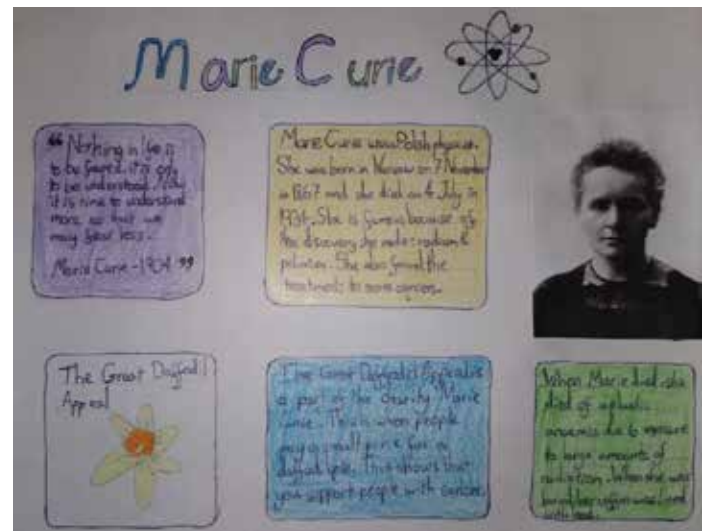 Marie Curie
“ Nothing in life is
to be feared, it is only
to be understood. Now
it is time to understand
more, so that we
may fear less.
Marie Curie - 1934 ”
Marie Curie was Polish physicist.
She was born in Warsaw on 7 November
in 1867 and she died on 4 July in
1934. She is famous because of
the discovery she made: radium &
polonium. She also found the
treatments to some cancers.
The Great Daffodil
Appeal
The Great Daffodil Appeal is
a part of the charity Marie
Curie. This is when people
pay a small price for a
daffodil. This shows that
you support people with cancer.
When Marie died, she
died of aplastic
anaemia due to exposure
to large amounts of
radiation. When she was
buried her coffin was lined
with lead.